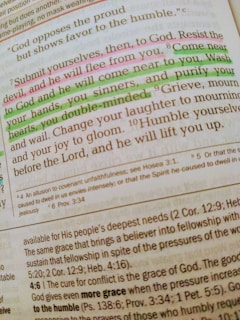 does another, no
ame-playing, no mask wearing
"God opposes the proud
but shows favor to the humble." c
7 Submit yourselves, then, to God. Resist the
devil, and he will flee from you. 8 Come near
to God and he will come near to you. Wash
your hands, you sinners, and purify your
hearts, you double-minded. 9 Grieve, mourn
and wail. Change your laughter to mourning
and your joy to gloom. 10 Humble yourselves
before the Lord, and he will lift you up.
a 4 An allusion to covenant unfaithfulness; see Hosea 3:1. b 5 Or that the
caused to dwell in us envies intensely; or that the Spirit he caused to dwell in
jealously c 6 Prov. 3:34
available for His people's deepest needs (2 Cor. 12:9; Heb
The same grace that brings a believer into fellowship with
stain that fellowship in spite of the pressures of the wo
5:20; 2 Cor. 12:9; Heb. 4:16).
4:6 | The cure for conflict is the grace of God. The good
God gives even more grace when the pressure increase
to the humble (Ps. 138:6; Prov. 3:34; 1 Pet. 5:5). Go
to the prayers of those who humbly reques